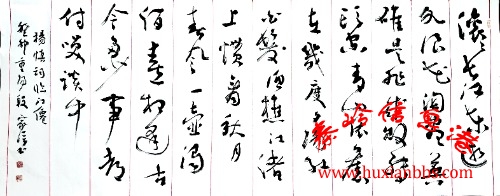 滚滚长江东逝
水浪花淘尽英
雄是非成败转
头空青山依旧
在几度夕阳红
白发渔樵江渚
上惯看秋月
春风一壶浊
酒喜相逢古
今多少事都
付笑谈中
楊慎詞临江僊
癸卯
秦岭信息港
www.huxianbbs.com